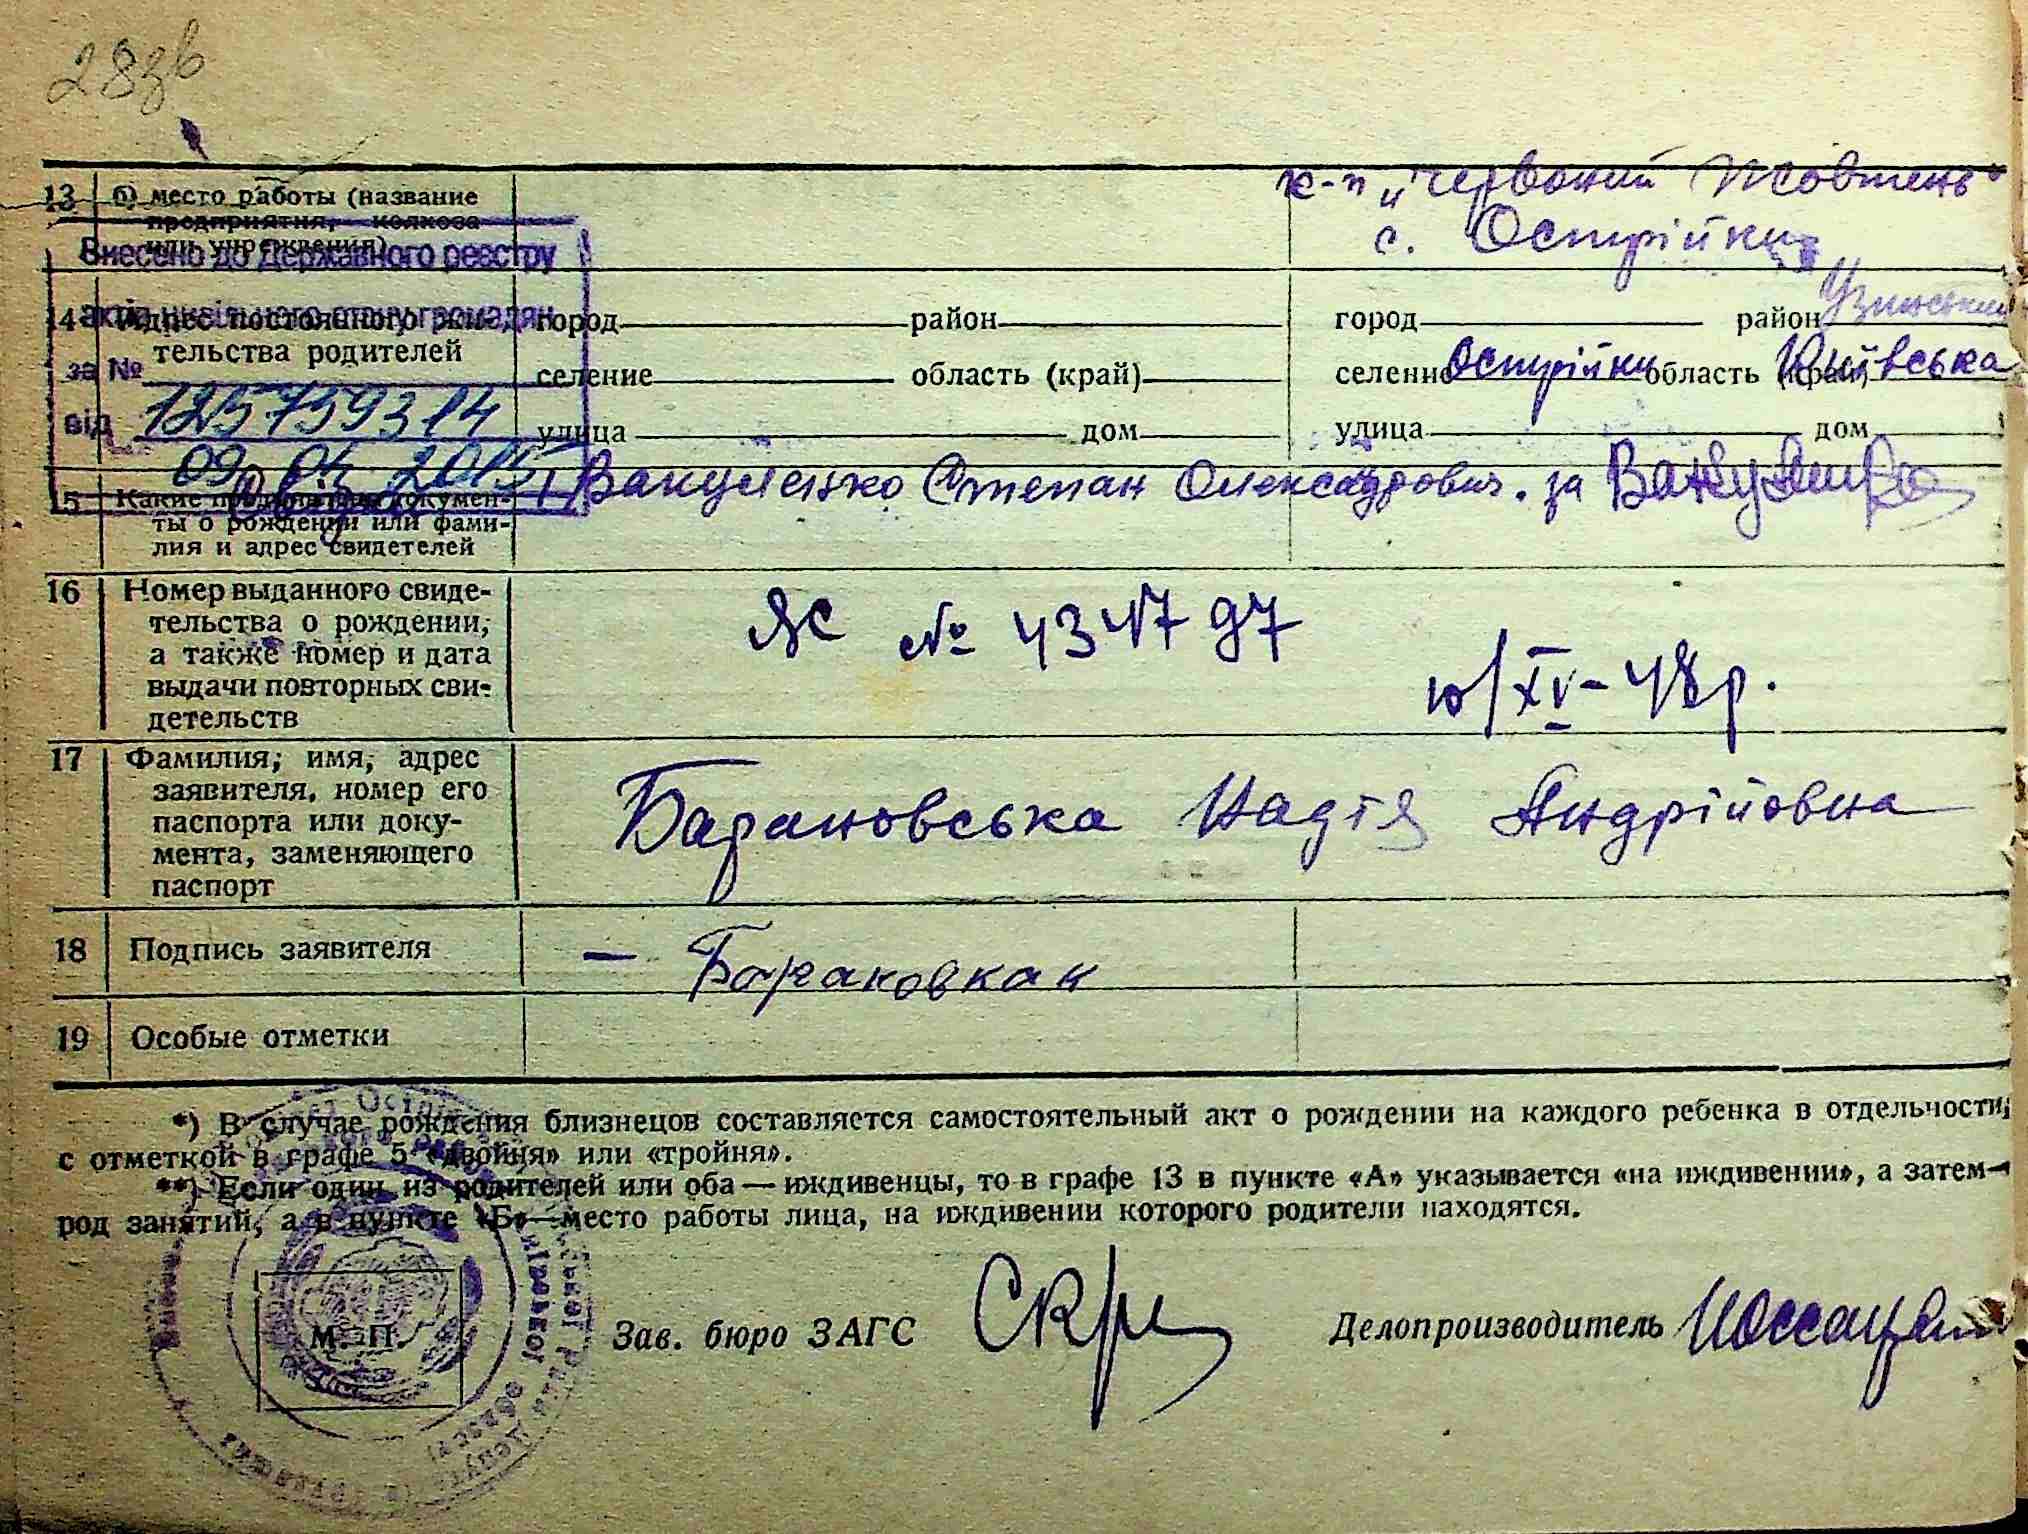 28зв
13 б) место работы (название к-п „Червоний Жовтень"
предприятия, колхоза с. Острійки
или учреждения)
Внесено до Державного реєстру
актів цивільного стану громадян
за №
125759314
від
09 04 2015
14 Адрес постоянного жи- город район город район Узинський
тельства родителей
селение область (край) селение Острійки область (край) Київська
улица дом улица дом
15 Какие предъявлены докумен- 1) Вакуленко Степан Олександрович. за
ты о рождении или фами-
лия и адрес свидетелей
16 Номер выданного свиде-
тельства о рождении, ЯС № 434797
а также номер и дата
выдачи повторных сви- 10/XV-48р.
детельств
17 Фамилия, имя, адрес
заявителя, номер его
паспорта или доку- Барановська Надія Андрійовна
мента, заменяющего
паспорт
18 Подпись заявителя —
19 Особые отметки
*) В случае рождения близнецов составляется самостоятельный акт о рождении на каждого ребенка в отдельности,
с отметкой в графе 5 «двойня» или «тройня».
**) Если один из родителей или оба — иждивенцы, то в графе 13 в пункте «А» указывается «на иждивении», а затем—
род занятий, а в пункте «Б»—место работы лица, на иждивении которого родители находятся.
М. П. Зав. бюро ЗАГС Делопроизводитель